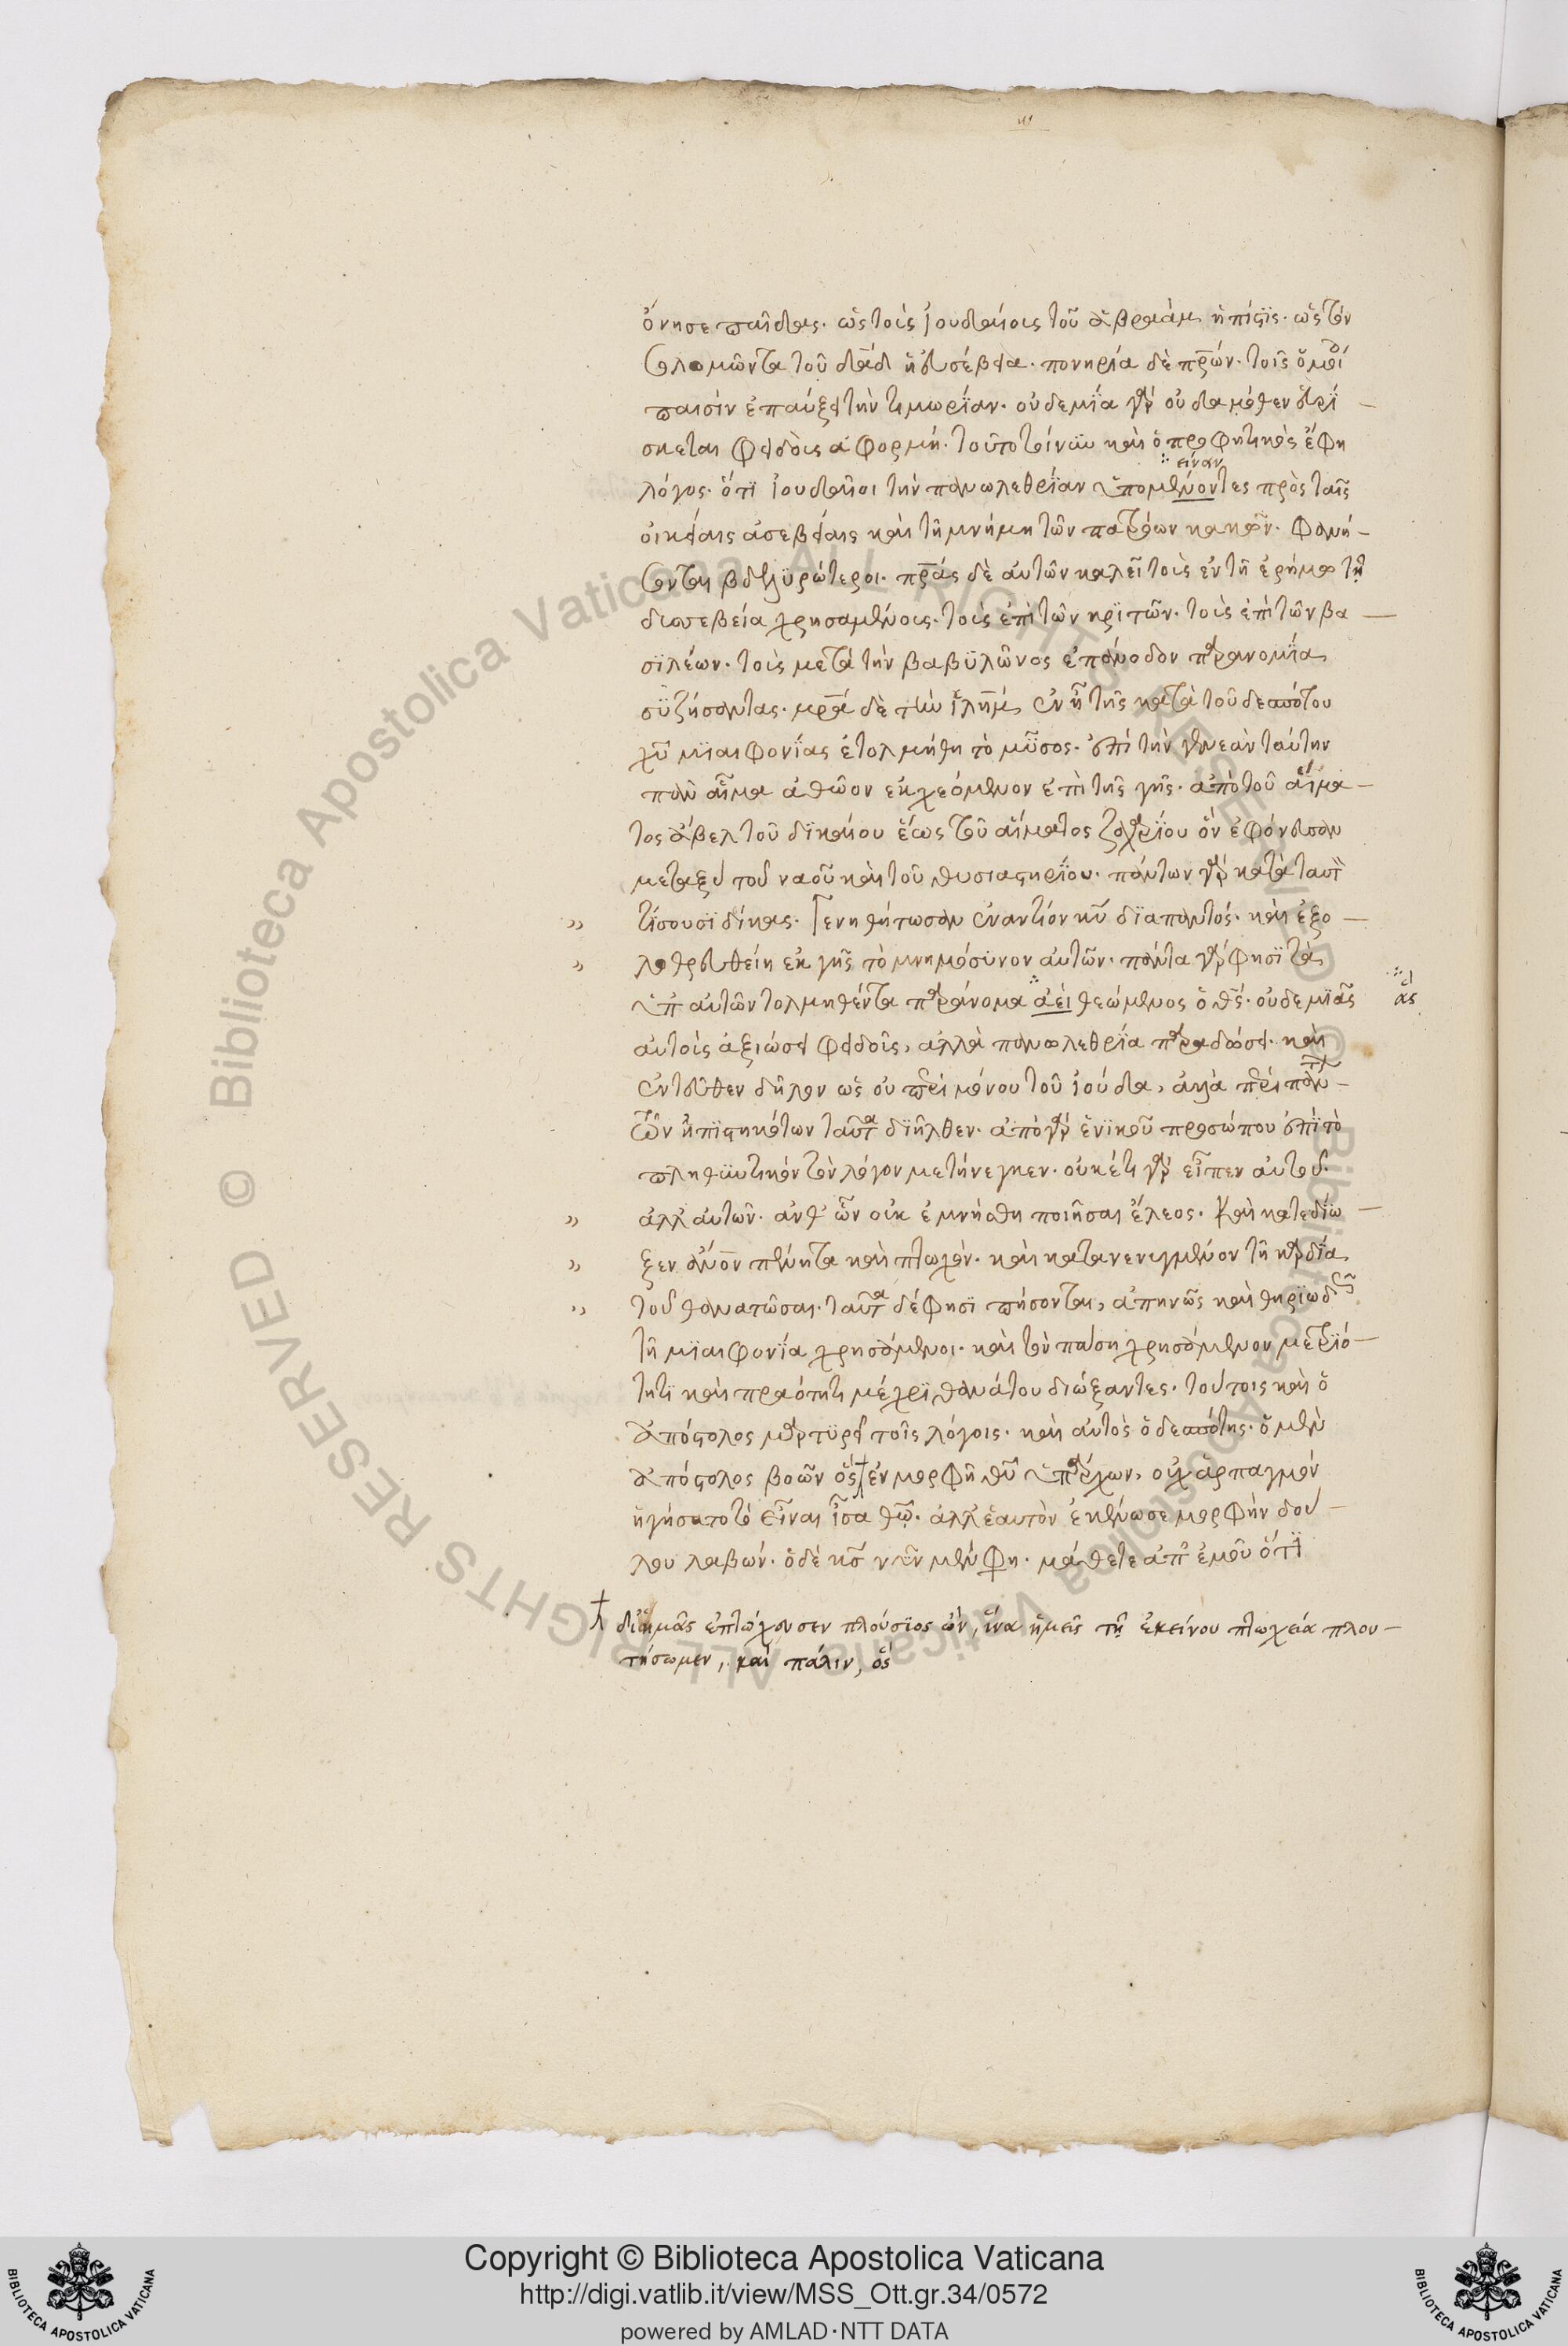 ὄνησε παῖδας. ὡς τοῖς ἰουδαίοις τοῦ ἀβραὰμ ἡ πίστϊς. ὡς τὸν
σολομῶντα τοῦ δᾱδ ἡ εὐσέβεια. πονηρία δὲ πρ̅ων. τοῖς ὁμοί
παισὶν ἐπαύξει τὴν τιμωρΐαν. οὐδεμΐα γὰρ οὐδαμόθεν εὑρΐ —
σκεται φειδοῦς ἀφορμή. τοῦτο τοίνυν καὶ ὁ προφητικὸς ἔφη
εἱναν
λόγος. ὅτϊ ἰουδαῖοι τὴν πανωλεθρΐαν ὑπομένοντες πρὸς ταῖς
οἰκείαις ἀσεβείαις καὶ τῇ μνήμῃ τῶν πατρώων κακῶν. φανή —
σονται βδελϋρώτεροι. πρ̅ας δὲ αὐτῶν καλεῖ τοὺς ἐν τῇ ἐρήμω τῇ
δυσσεβεία χρησαμένους. τοὺς ἐπὶ τῶν κρϊτῶν. τοὺς ἐπὶ τῶν βα —
σϊλέων. τοὺς μετὰ τὴν βαβϋλῶνος ἐπάνοδον παρανομΐα
σϋζήσαντας. μρ̅α δὲ τὴν ἱλημ̅, ἐν ἧ τῆς κατὰ τοῦ δεσπότου
χυ̅ μϊαιφονΐας ἐτολμήθη τὸ μῦσος. ἐπὶ τὴν γενεὰν ταύτην
πᾶν αἷμα ἀθῶον ἐκχεόμενον ἐπὶ τῆς γῆς. ἀπὸ τοῦ αἵμα —
τος ἄβελ τοῦ δϊκαίου ἕως τοῦ αἵματος ζαχαρΐου ὃν ἐφόνευσαν
μεταξὺ τοῦ ναοῦ καὶ τοῦ θυσιαστηρΐου. πάντων γὰρ κατὰ ταυτὸν
„ τίσουσϊ δίκας. Γενηθήτωσαν ἐναντίον κυ̅ δϊαπαντός. καὶ ἐξο —
„ λοθρευθείη ἐκ γῆς τὸ μνημόσϋνον αὐτῶν. πάντα γὰρ φησϊ τὰ
ὑπ αὐτῶν τολμηθέντα παράνομα ἀεὶ θεώμενος ὁ θς̅. οὐδεμϊᾶς
αὐτοὺς ἀξιώσει φειδοῦς, ἀλλὰ πανωλεθρΐα παραδώσει. καὶ
ἐντεῦθεν δῆλον ὡς οὐ περὶ μόνου τοῦ ἰούδα, ἀλλὰ περὶ πάν —
των ἠπϊστηκότων ταῦτα δϊῆλθεν. ἀπὸ γὰρ ἑνϊκοῦ προσώπου ἐπὶ τὸ
πληθϋντικὸν τὸν λόγον μετήνεγκεν. οὐκέτι γὰρ εἶπεν αὐτοῦ.
„ ἀλλ αὐτῶν. ἀνθ ὧν οὐκ ἐμνήσθη ποιῆσαι ἔλεος. Καὶ κατεδΐω —
„ ξεν α̅νο̅ν πένητα καὶ πτωχόν. καὶ κατανενυγμένον τῇ καρδΐα,
„ τοῦ θανατῶσαι. ταῦτα δέ φησϊ πείσονται, ἀπηνῶς καὶ θηρϊωδῶς
τῇ μϊαιφονΐα χρησάμενοι. καὶ τὸν πάση χρησάμενον μετρϊό —
τητϊ καὶ πραότητι μέχρϊ θανάτου διώξαντες. τούτοις καὶ ὁ
ἀπόστολος μαρτϋρεῖ τοῖς λόγοις. καὶ αὐτὸς ὁ δεσπότης. ὁ μὲν
ἀπόστολος βοῶν ὃς ἐν μορφῆ θυ̅ ὑπάρχων, οὐχ ἁρπαγμὸν
ἡγήσατο τὸ εἶναι ἶσα θω̅. ἀλλ ἑαυτὸν ἐκένωσε μορφὴν δού —
λου λαβών. ὁ δὲ κς̅ νῦν μὲν ἔφη. μάθετε ἀπ ἐμοῦ ὅτϊ
ὡς
δι ἡμᾶς ἐπτώχευσεν πλούσϊος ὤν, ἵνα ἡμεῖς τῇ ἐκείνου πτωχεία πλου —
τήσωμεν, καὶ πάλιν, ὃς
Copyright © Biblioteca Apostolica Vaticana
http://digi.vatlib.it/view/MSS_Ott.gr.34/0572
powered by AMLAD·NTT DATA
BIBLIOTECA APOSTOLICA VATICANA
BIBLIOTECA APOSTOLICA VATICANA
© Biblioteca Apostolica Vaticana ALL RIGHTS RESERVED
© Biblioteca Apostolica Vaticana ALL RIGHTS RESERVED